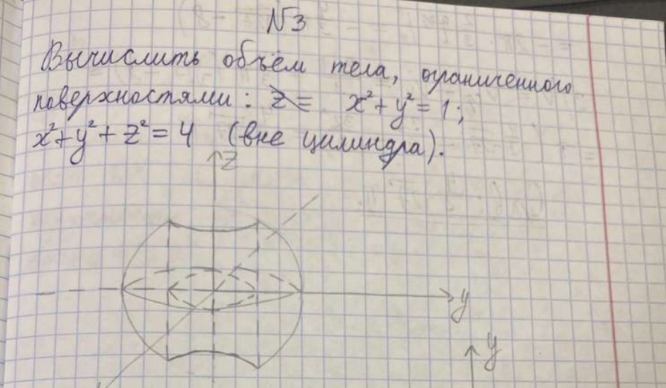 N3
Вычислить объём тела, ограниченного
поверхностями: z = x² + y² = 1;
x² + y² + z² = 4 (вне цилиндра).
z
y
y